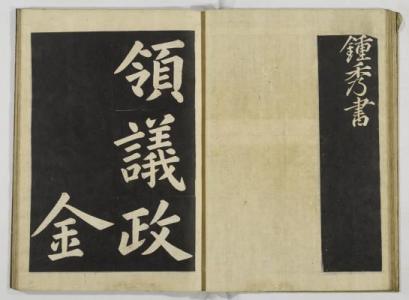 鍾秀書
領議政
金